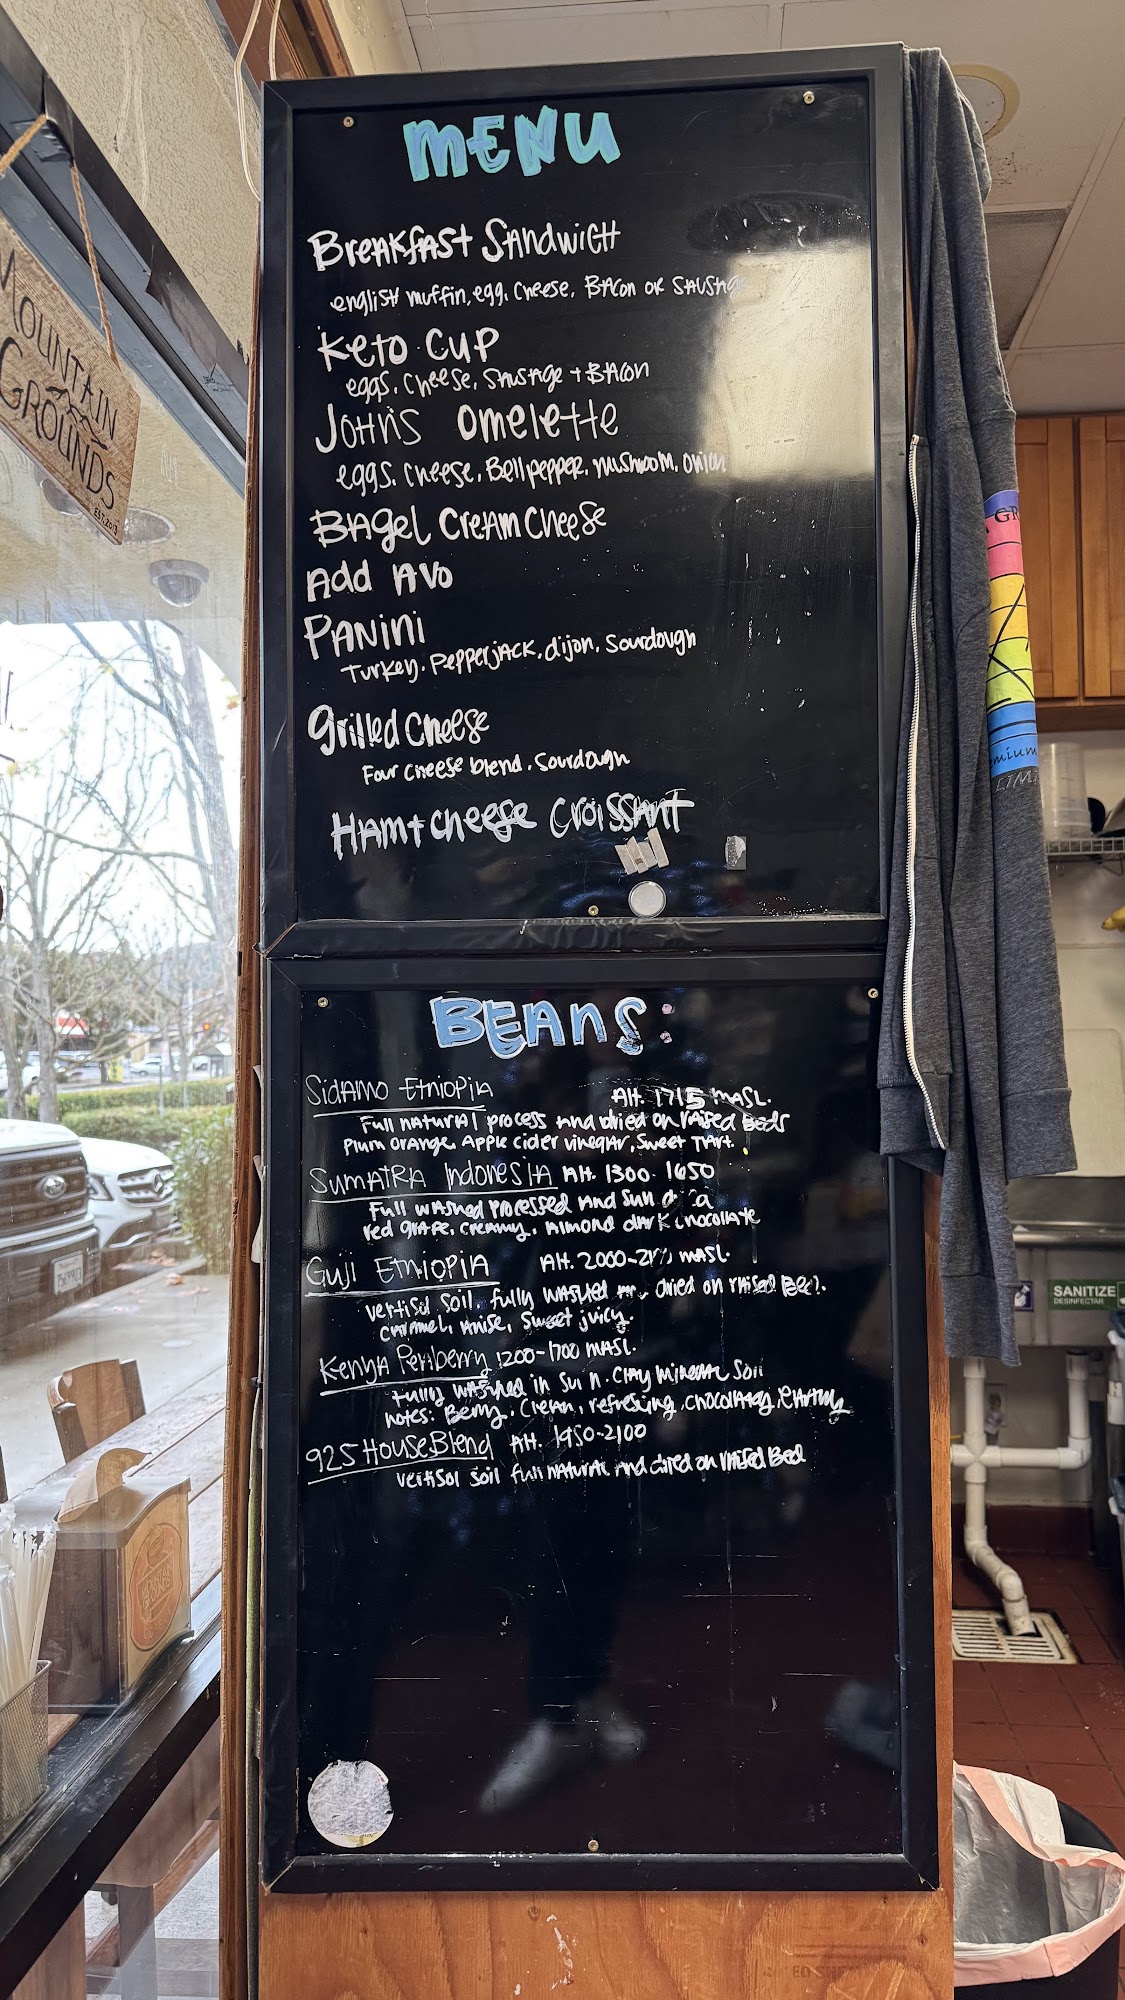 MOUNTAIN
GROUNDS
EST. 2013
MENU
Breakfast Sandwich
english muffin, egg, cheese, Bacon or Sausage
Keto Cup
eggs, cheese, Sausage + Bacon
John's Omelette
eggs, cheese, Bell pepper, mushroom, onion
Bagel Cream Cheese
Add Avo
Panini
Turkey, Pepperjack, dijon, Sourdough
Grilled Cheese
Four cheese blend, Sourdough
Ham + cheese Croissant
BEANS:
Sidamo Ethiopia Alt. 1715 MASL.
Full natural process and dried on raised beds
Plum orange, Apple cider vinegar, sweet tart.
Sumatra Indonesia Alt. 1300-1650
Full washed processed and Sun
red grape, creamy, Almond dark chocolate
Guji Ethiopia Alt. 2000- MASL.
vertisol soil, fully washed dried on raised Bed.
caramel, Anise, Sweet juicy.
Kenya Periberry 1200-1700 MASL.
fully washed in Sun. Clay mineral Soil
notes: Berry, Clean, refresing, chocolatey, earthy
925 House Blend Alt. 1950-2100
vertisol soil full natural and dried on raised Bed
SANITIZE
DESINFECTAR
GR
mium
LIM